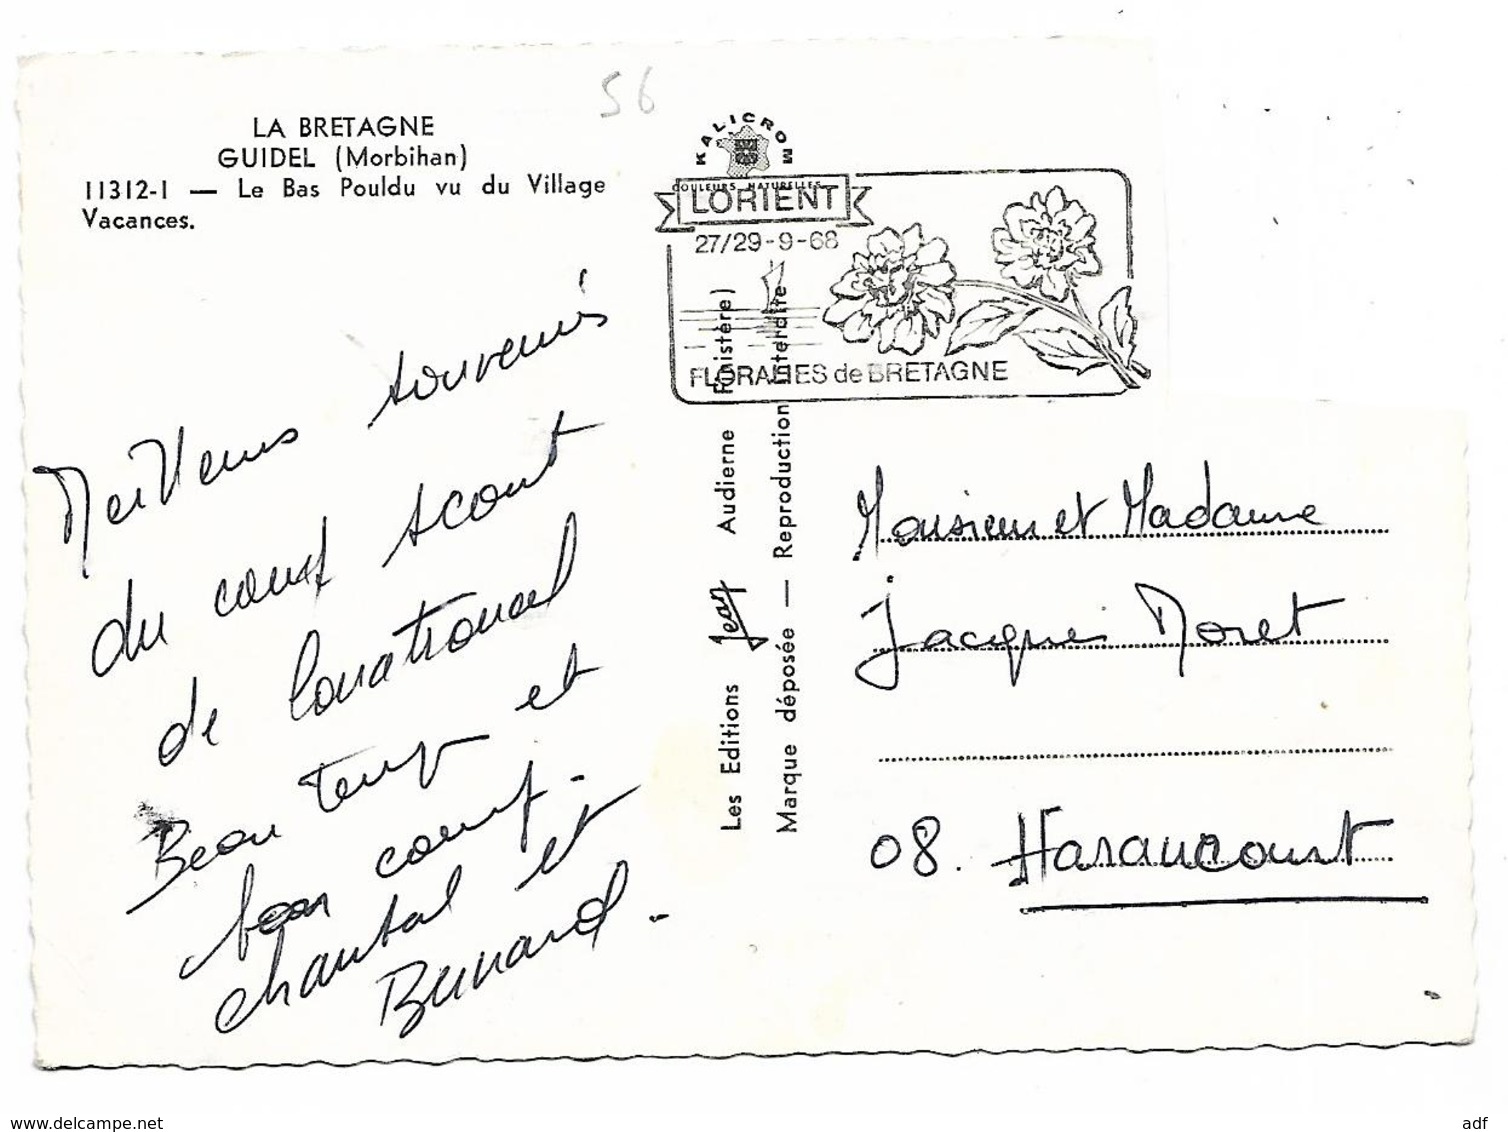 56
LA BRETAGNE
GUIDEL (Morbihan)
11312-1 — Le Bas Pouldu vu du Village
Vacances.
KALICROM
COULEURS NATURELLES
LORIENT
27/29-9-68
FLORALIES de BRETAGNE
Meilleurs souvenirs
du camp scout
de
Beau temps et
bon camp.
Chantal et
Bernard.
Les Editions Jean Audierne (Finistère)
Marque déposée — Reproduction interdite
Monsieur et Madame
Jacques Moret
08. Haraucourt
www.delcampe.net
adf